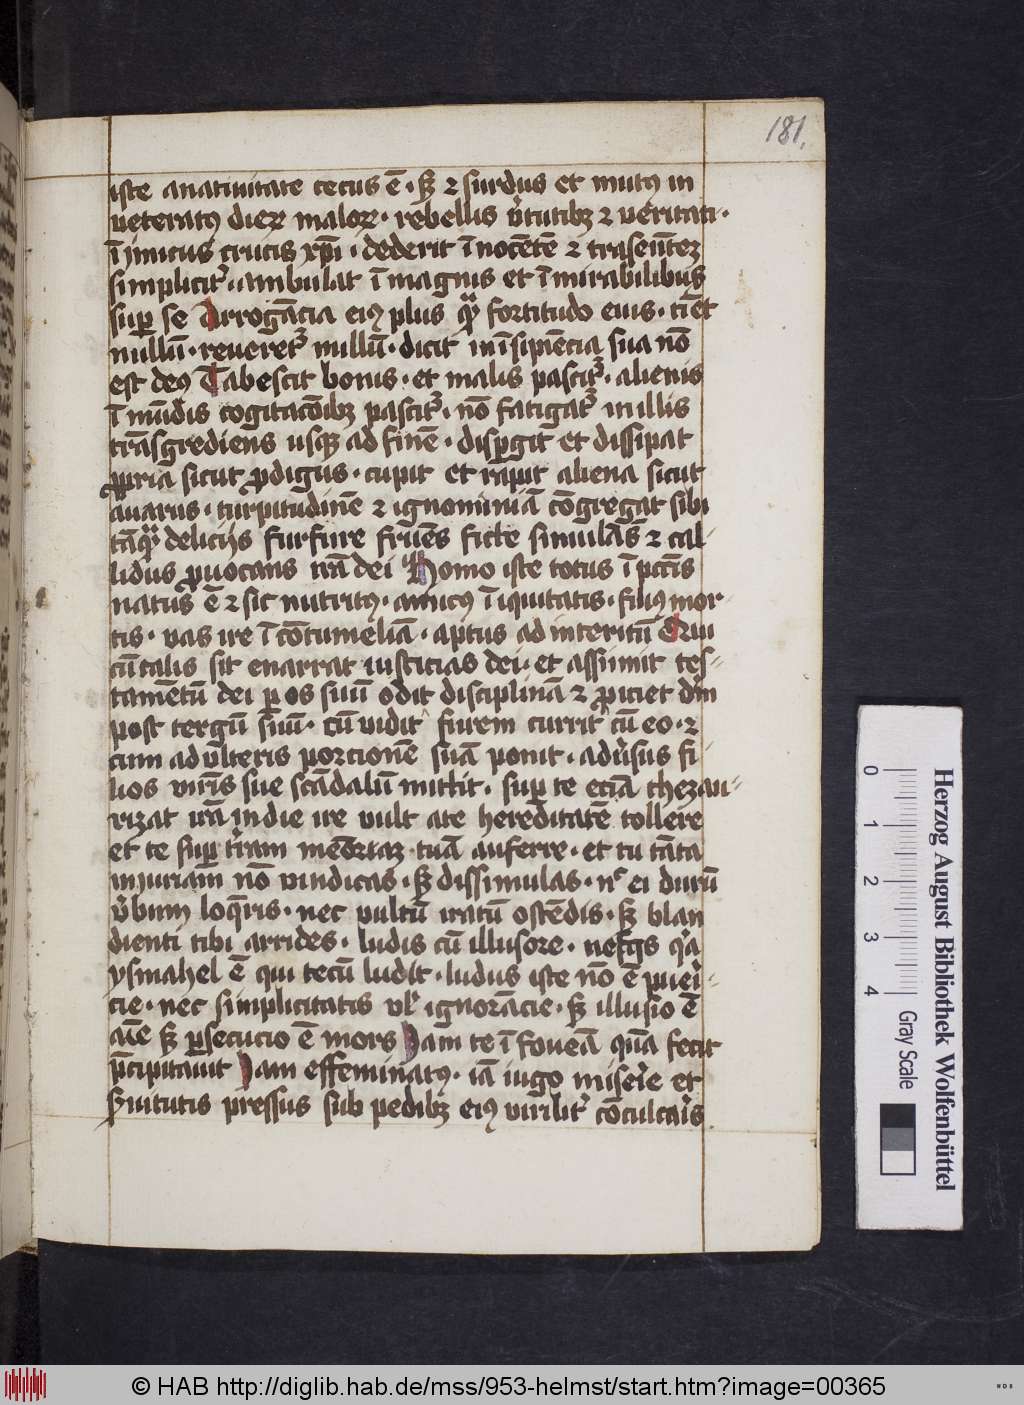 181.
iste anatiuitate cecus ē · sꝫ ⁊ surdus et mutꝯ in
ueteratꝯ dieꝝ maloꝝ · rebellis v̓tutibꝫ ⁊ veritati ·
īimicus crucis xp̄i · dederit īnocētē ⁊
simplicit̓ · ambulat ī magnis et ī mirabilibus
sup̱ se Arrogācia eiꝯ plus qᷓ fortitudo eius ·
nullū · reueret᷒ nullū · dicit in īsipiēcia sua nō
est deꝯ Tabescit bonis · et malis pascit᷒ · alienis
ī mūdis cogitacōibꝫ pascit᷒ · nō fatigat᷒ in illis
trāsgrediens usqꝫ ad finē · disp̱git et dissipat
ꝓpria sicut ꝓdigus · cupit et rapit aliena sicut
auarus · turpitudinē ⁊ ignominiā cōgregat sibi
tāqᷓ deliciis furfure fruēs ficte simulās ⁊ cal-
lidus ꝓuocans irā dei Homo iste totus ī pctīs
natus ē ⁊ sic nutritꝯ · amicꝯ īiquitatis · filiꝯ mor-
tis · vas ire ī cōtumeliā · aptus ad interitū Qui
cū talis sit enarrat iusticias dei · et assumit tes-
tamētū dei ꝑ os suū odit disciplinā ⁊ ꝓiciet dm̄
post tergū suū · cū vidit furem currit cū eo · ⁊
cum adulteris porcionē suā ponit · adu̓sus fi
lios mr̄is sue scādalū mittit · sup̱ te eciā thezau-
rizat irā in die ire vult a te hereditatē tollere
et te sup̱ t̓ram tuā auferre · et tu tāta
iniuriam nō vindicas · sꝫ dissimulas · nᶜ ei durū
v̓bum loq̄ris · nec vultū iratū ostēdis · sꝫ blan
dienti tibi arrides · ludis cū illusore · nescis qᷓ
ysmahel ē qui tecū ludit · ludus iste nō ē pueri-
cie · nec simplicitatis vl̓ ignorācie · sꝫ illusio ē
aīe sꝫ ꝑsecucio ē mors Nam te ī foueā quā fecit
p̄cipitauit Nam effeminatꝯ · iā iugo miserie et
s̓uitutis pressus sub pedibꝫ eiꝯ virilit̓ cōculcaris
0 1 2 3 4
Herzog August Bibliothek Wolfenbüttel
Gray Scale
© HAB http://diglib.hab.de/mss/953-helmst/start.htm?image=00365